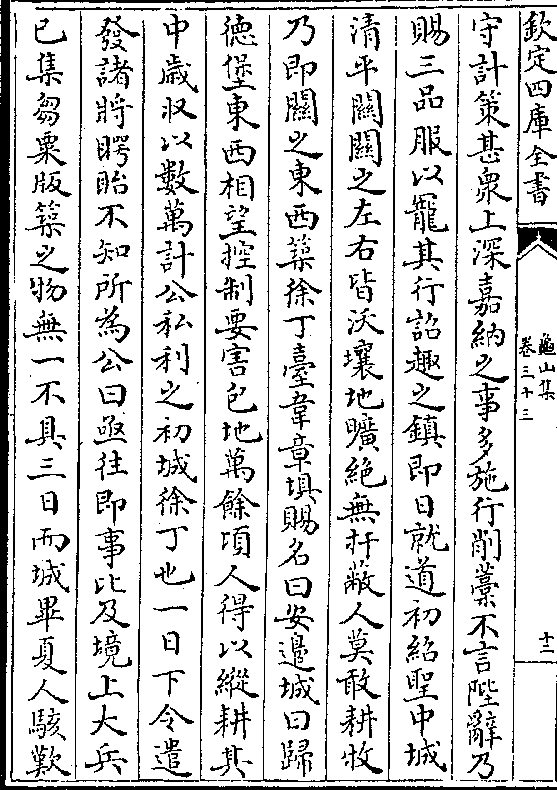 欽定四庫全書
龜山集
卷三十三
十二
守計策甚衆上深嘉納之事多施行削藁不言陛辭乃
賜三品服以寵其行詔趣之鎮即日就道初紹聖中城
清平闗闗之左右皆沃壤地曠絶無扞蔽人莫敢耕牧
乃即闗之東西築徐丁臺韋章塡賜名曰安邉城曰歸
德堡東西相望控制要害包地萬餘頃人得以縱耕其
中嵗収以數萬計公私利之初城徐丁也一日下令遣
發諸將睅眙不知所為公曰亟往即事比及境上大兵
已集芻粟版築之物無一不具三日而城畢夏人駭歎